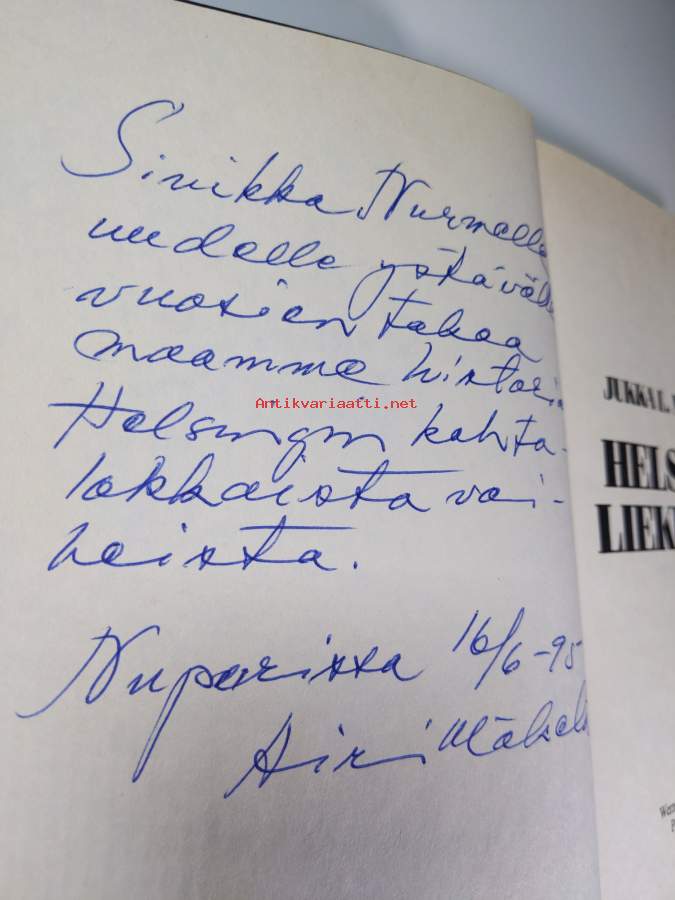 Sinikka Nurmelle
uudelle ystäväll
vuosien takaa
maamme histori
Helsingin kohta-
lokkaista vai-
heista.
Nuparissa 16/6-95
Airi Mäkel
Antikvariaatti.net
JUKKA L.
HELS
LIEK